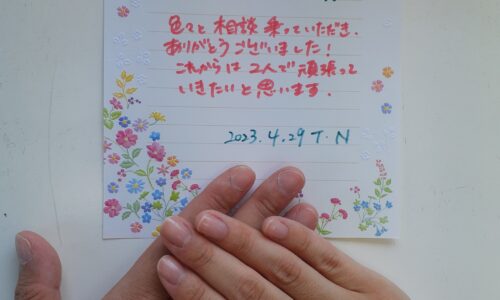 色々と相談乗っていただき、
ありがとうございました!
これからは2人で頑張って
いきたいと思います。
2023.4.29 T.N